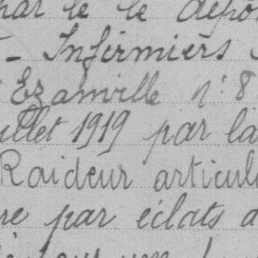 par le le dépo
- Infirmiers
Ezanville n° 8
uillet 1919 par la
Raideur articul
re par éclats d